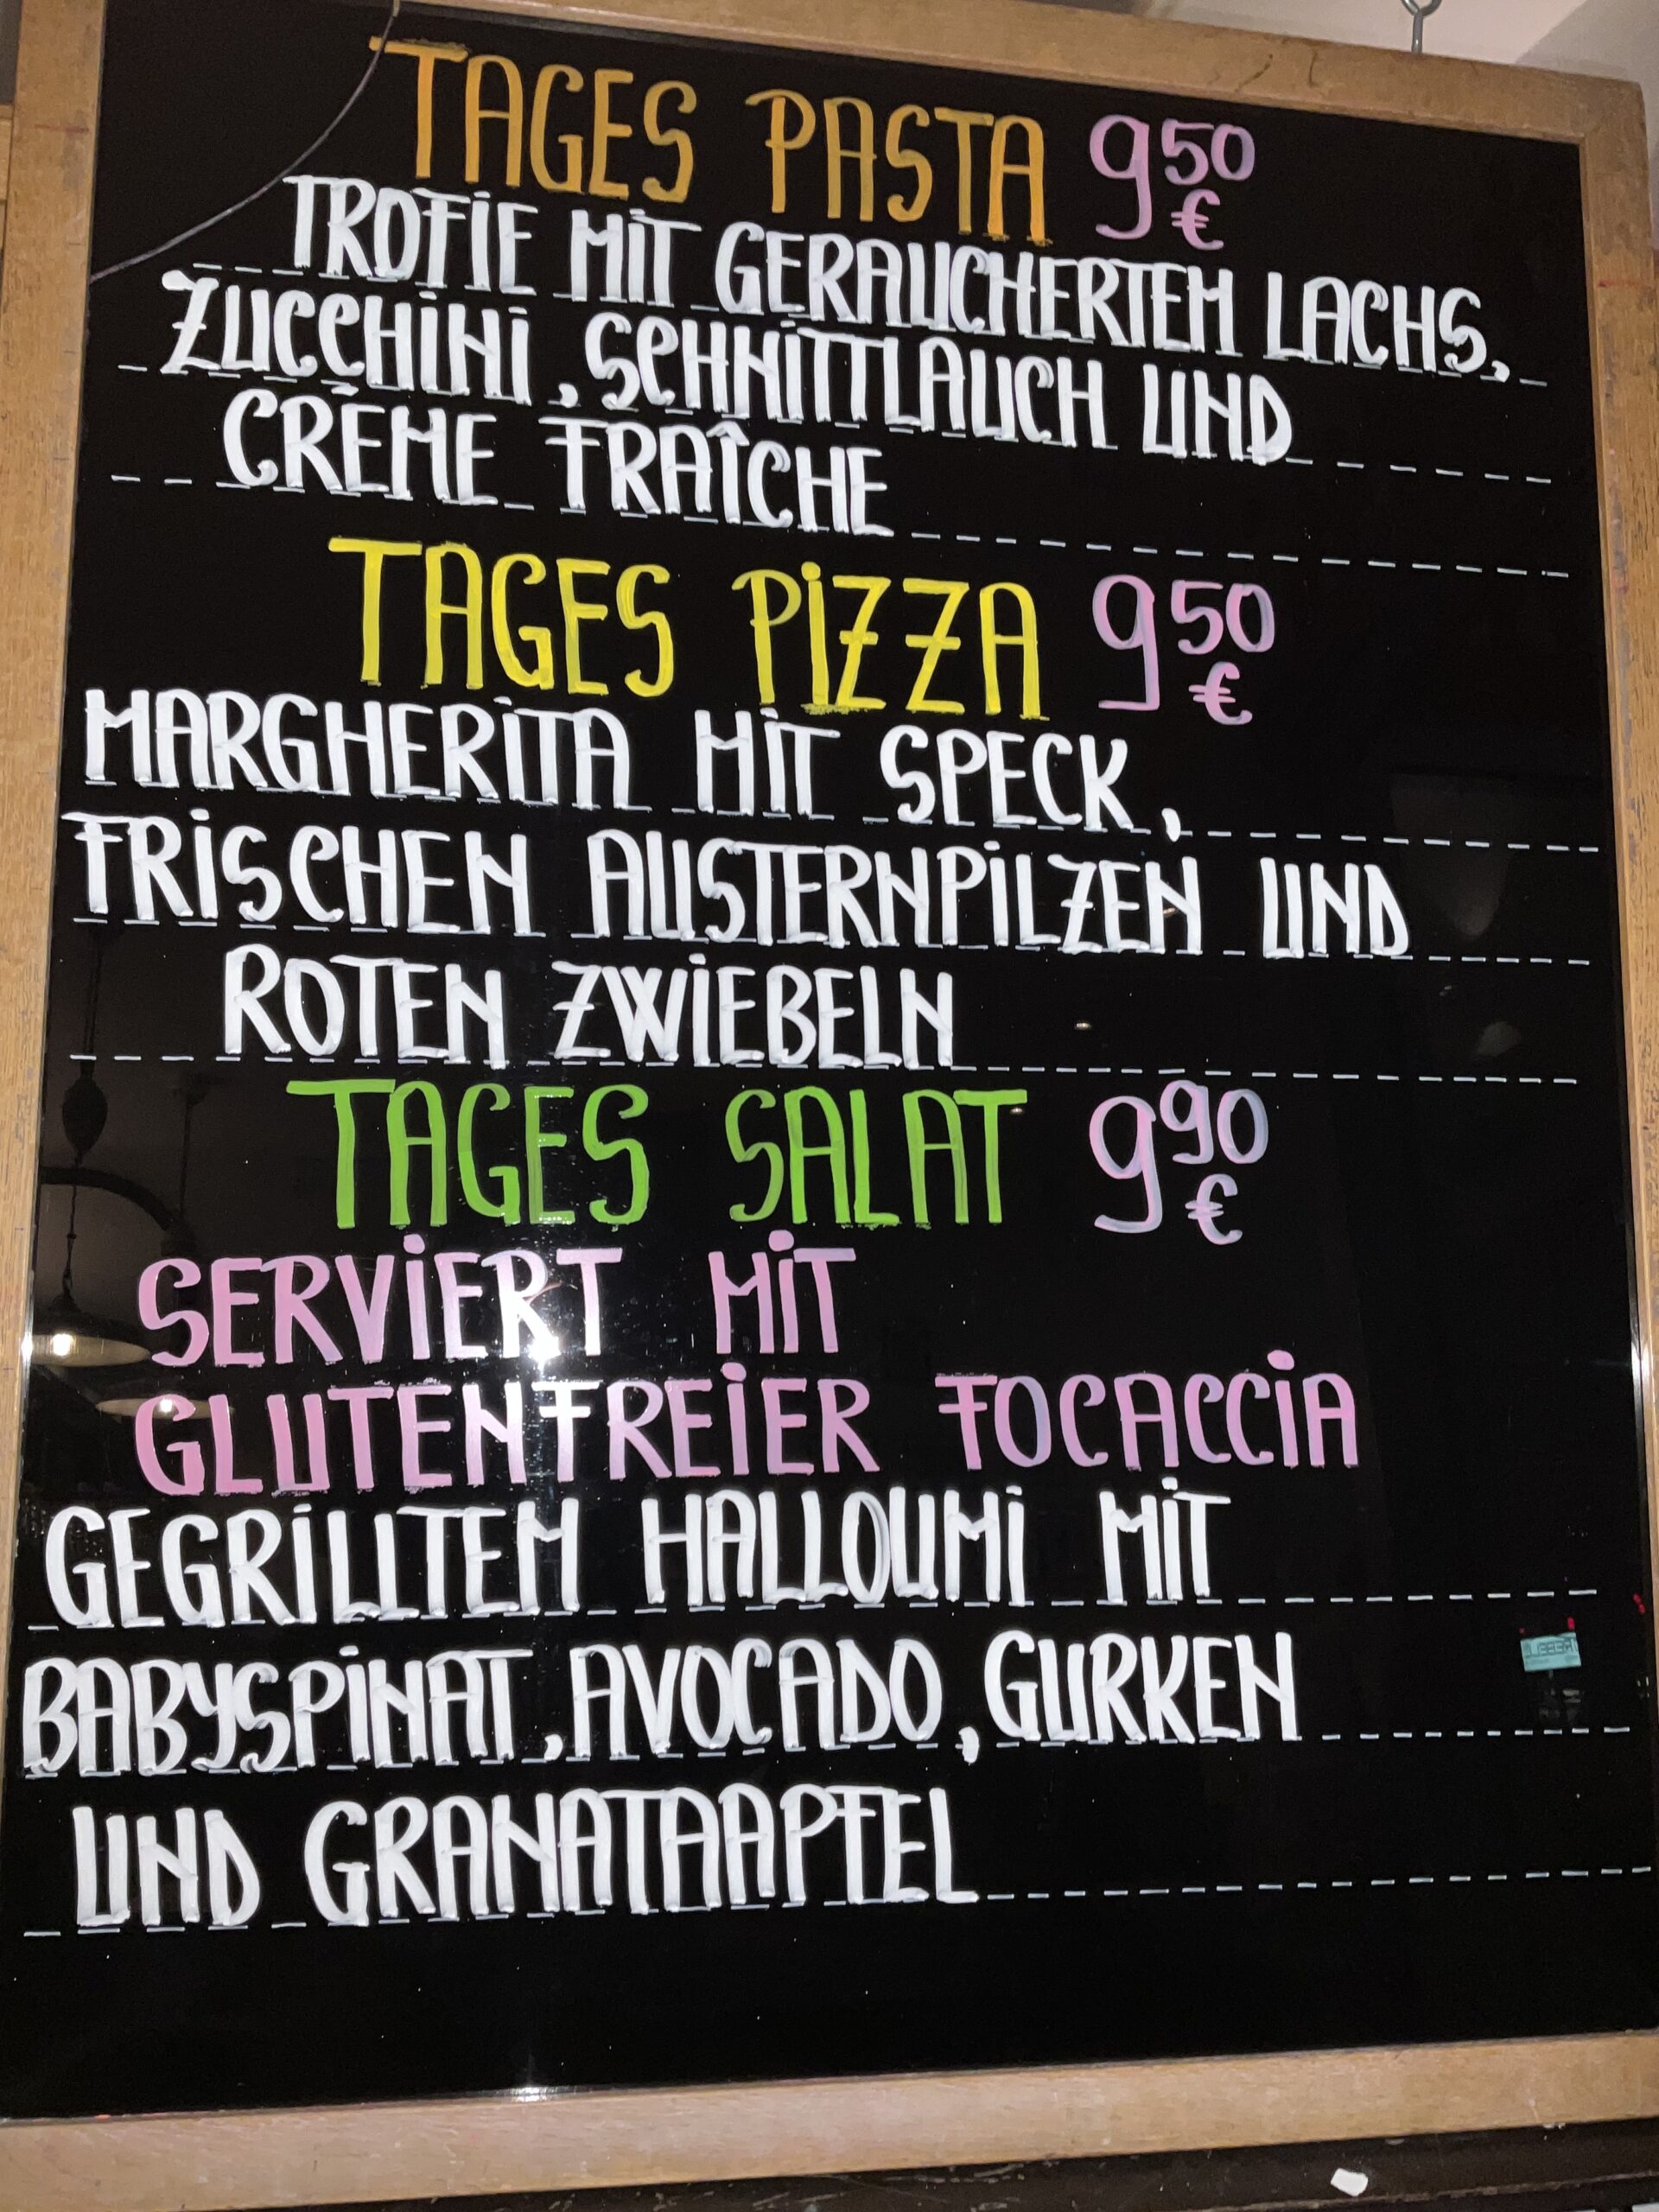 TAGES PASTA 9,50 €
TROFIE MIT GERAUCHERTEM LACHS,
ZUCCHINI, SCHNITTLAUCH UND
CRÈME FRAÎCHE
TAGES PIZZA 9,50 €
MARGHERITA MIT SPECK,
FRISCHEN AUSTERNPILZEN UND
ROTEN ZWIEBELN
TAGES SALAT 9,90 €
SERVIERT MIT
GLUTENFREIER FOCACCIA
GEGRILLTEM HALLOUMI MIT
BABYSPINAT, AVOCADO, GURKEN
UND GRANATAAPFEL